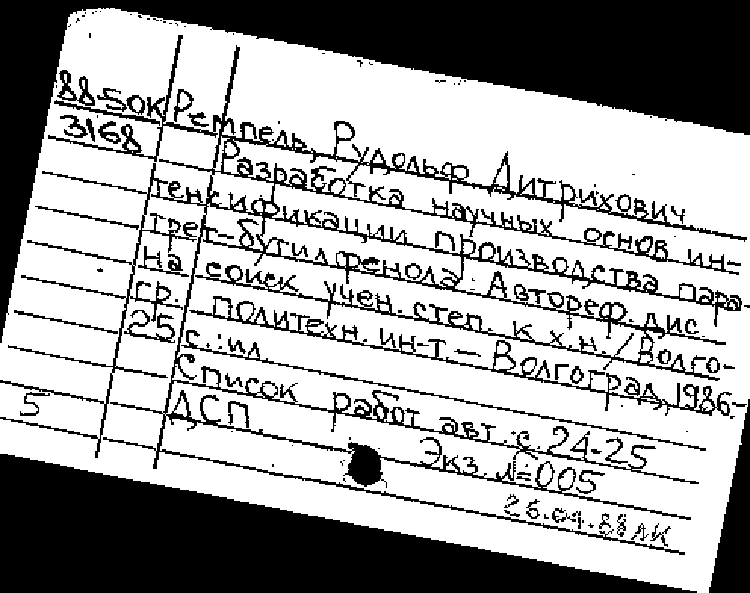 88-5ОК Ремпель, Рудольф Дитрихович.
3168 Разработка научных основ ин-
тенсификации производства пара-
трет-бутилфенола: Автореф. дис.
на соиск. учен. степ. к.х.н. / Волго-
гр. политехн. ин-т. – Волгоград, 1986.-
25 с.: ил.
Список работ авт.: с. 24-25
5 ДСП. Экз. №=005
26.01.88 ЛК